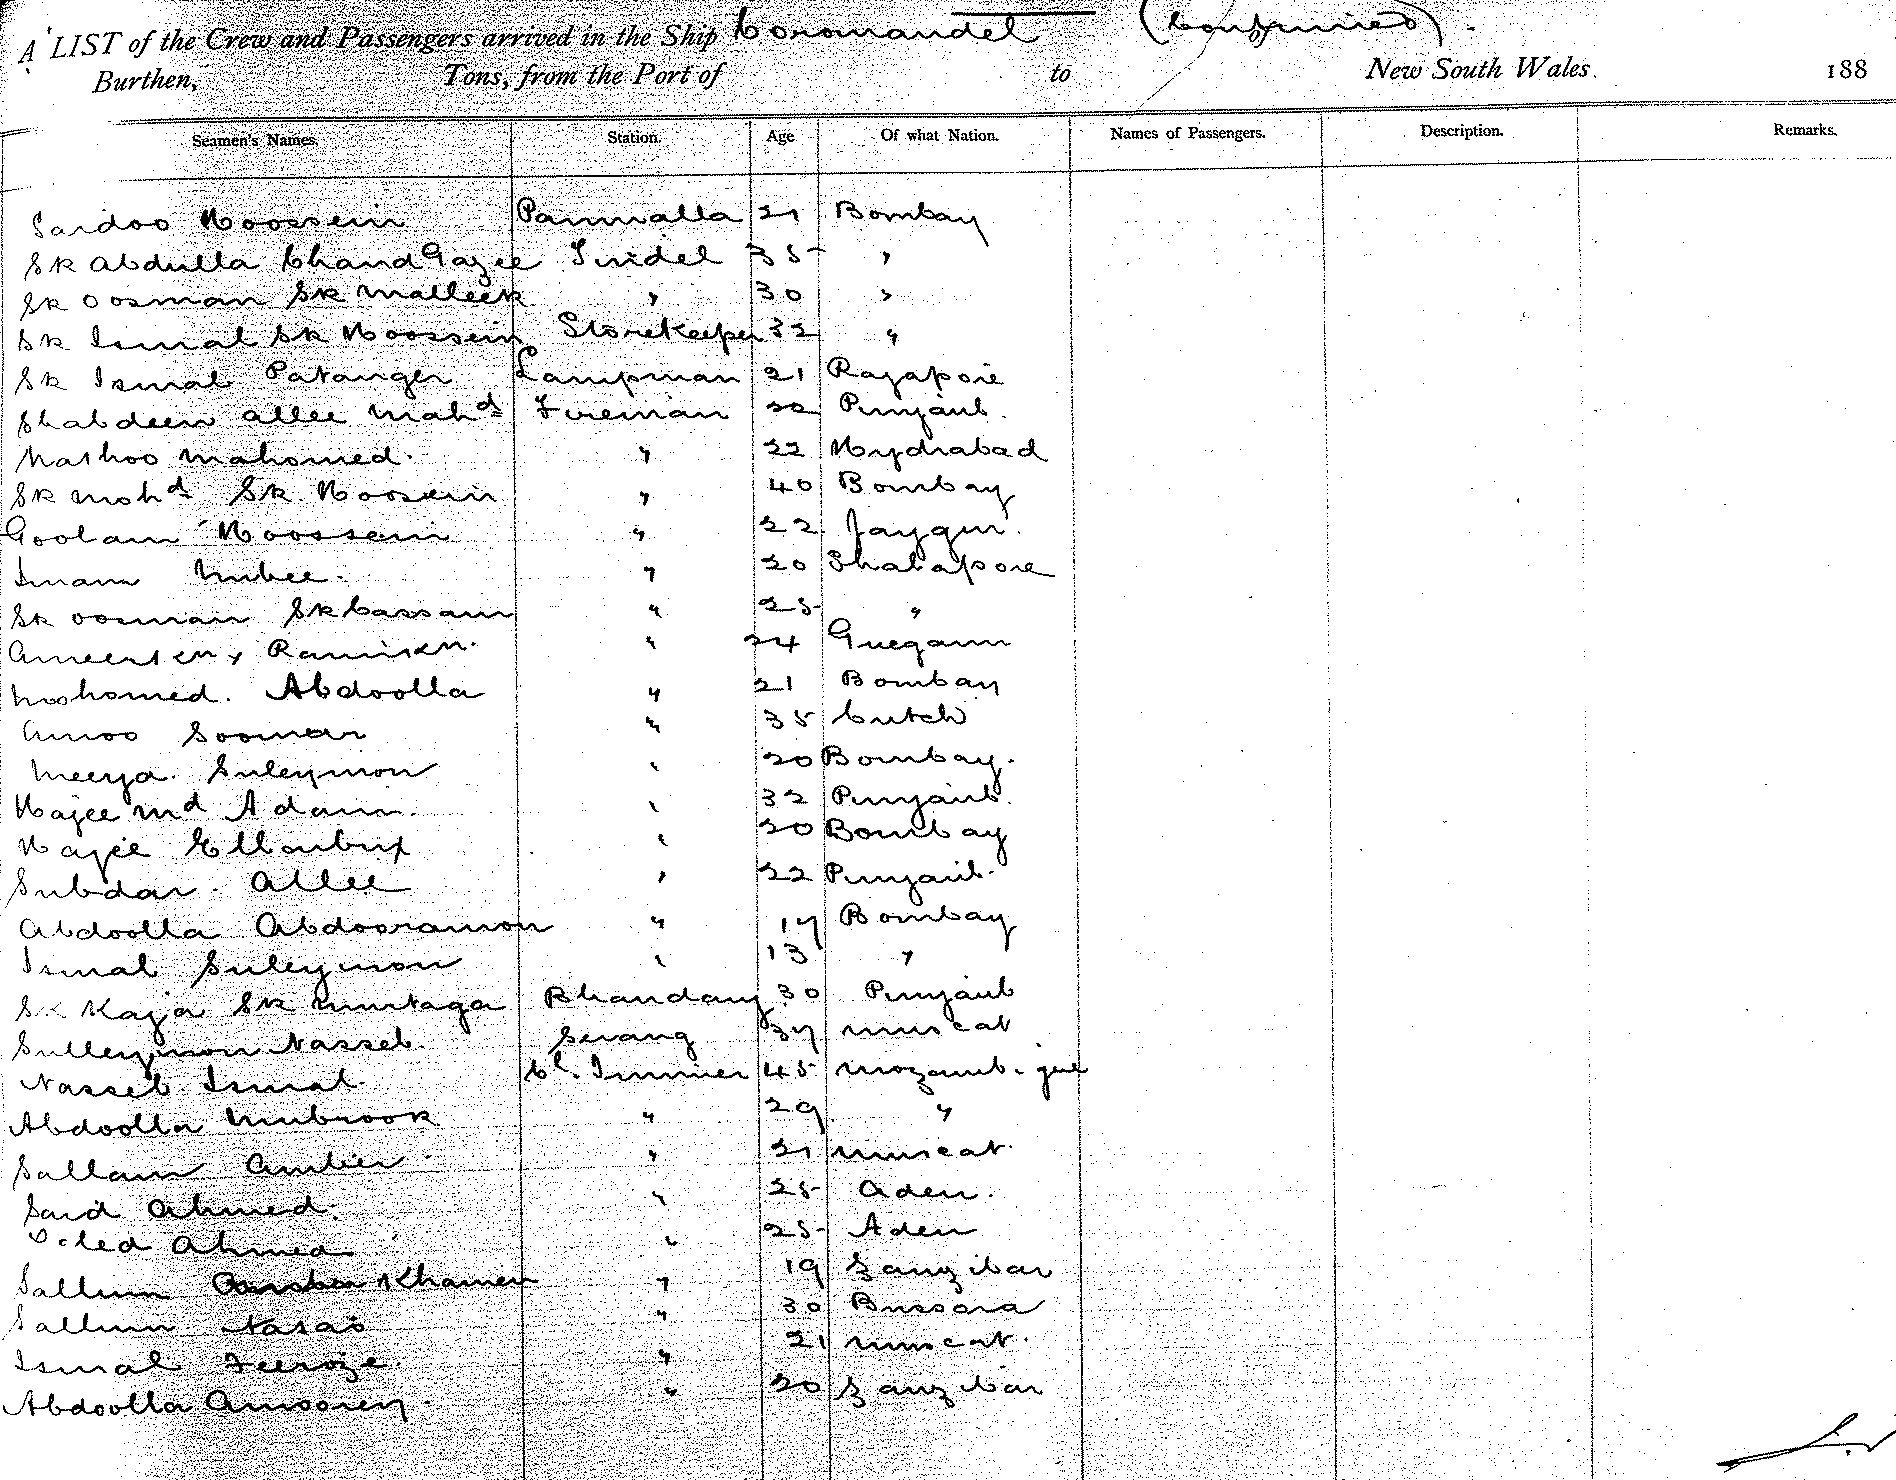 A LIST of the Crew and Passengers arrived in the Ship Coromandel (Continued).
Burthen, Tons, from the Port of to New South Wales. 188
Seamen's Names. Station. Age Of what Nation. Names of Passengers. Description. Remarks.
Saidoo Hoossein Paniwalla 21 Bombay
Sk Abdulla Chand Gazee Tindel 35 "
Sk Oosman Sk Malleek " 30 "
Sk Ismal Sk Hoossein Storekeeper 32 "
Sk Ismal Patanger Lampman 21 Rajapore
Shabdeen Allee Mahd Fireman 22 Punjaub.
Nathoo Mahomed. " 22 Hydrabad
Sk Mohd Sk Hoosein " 40 Bombay
Goolam Hoossein " 22 Jaygur.
Imam Nubee. " 20 Shalapore
Sk Oosman Sk Cassam " 25 "
Ramjan " 24
Mohomed. Abdoolla " 21 Bombay
Amoo Soomar " 35 Cutch
Meeya. Suleymon " 20 Bombay.
Hajee Md Adam. " 32 Punjaub.
Hajee Ellanbux " 20 Bombay
Subdar. Allee " 22 Punjaub.
Abdoolla Abdooramon " 17 Bombay
Ismal Suleymon " 13 "
Sk Kaja Sk Murtaga Bhandary 30 Punjaub
Sulleymon Nasseb. Serang 37 Muscat
Nasseb Ismal Cl. Trimmer 45 Mozambique
Abdoolla Mubrook " 29 "
Sallam Amber " 21 Muscat.
Said Ahmed. " 25 Aden.
Ahmed " 25 Aden
Sallum Khamen " 19 Zanzibar
Sallum " 30 Bussora
Ismal Feeroze. " 21 Muscat.
Abdoolla " 20 Zanzibar